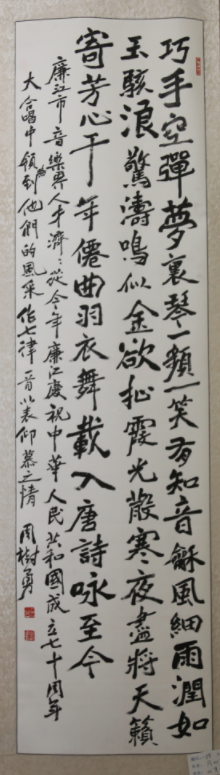 巧手空彈夢裏琴一顰一笑有知音龢風細雨潤如
玉駭浪驚濤鳴似金欲霞光散寒夜盡將天籟
寄芳心千年僊曲羽衣舞載入唐詩咏至今
廉江市音樂界人才濟濟從今年廉江慶祝中華人民共和國成立七十周年
大合唱中領到他們的風采作七律一首以表仰慕之情 周樹勇